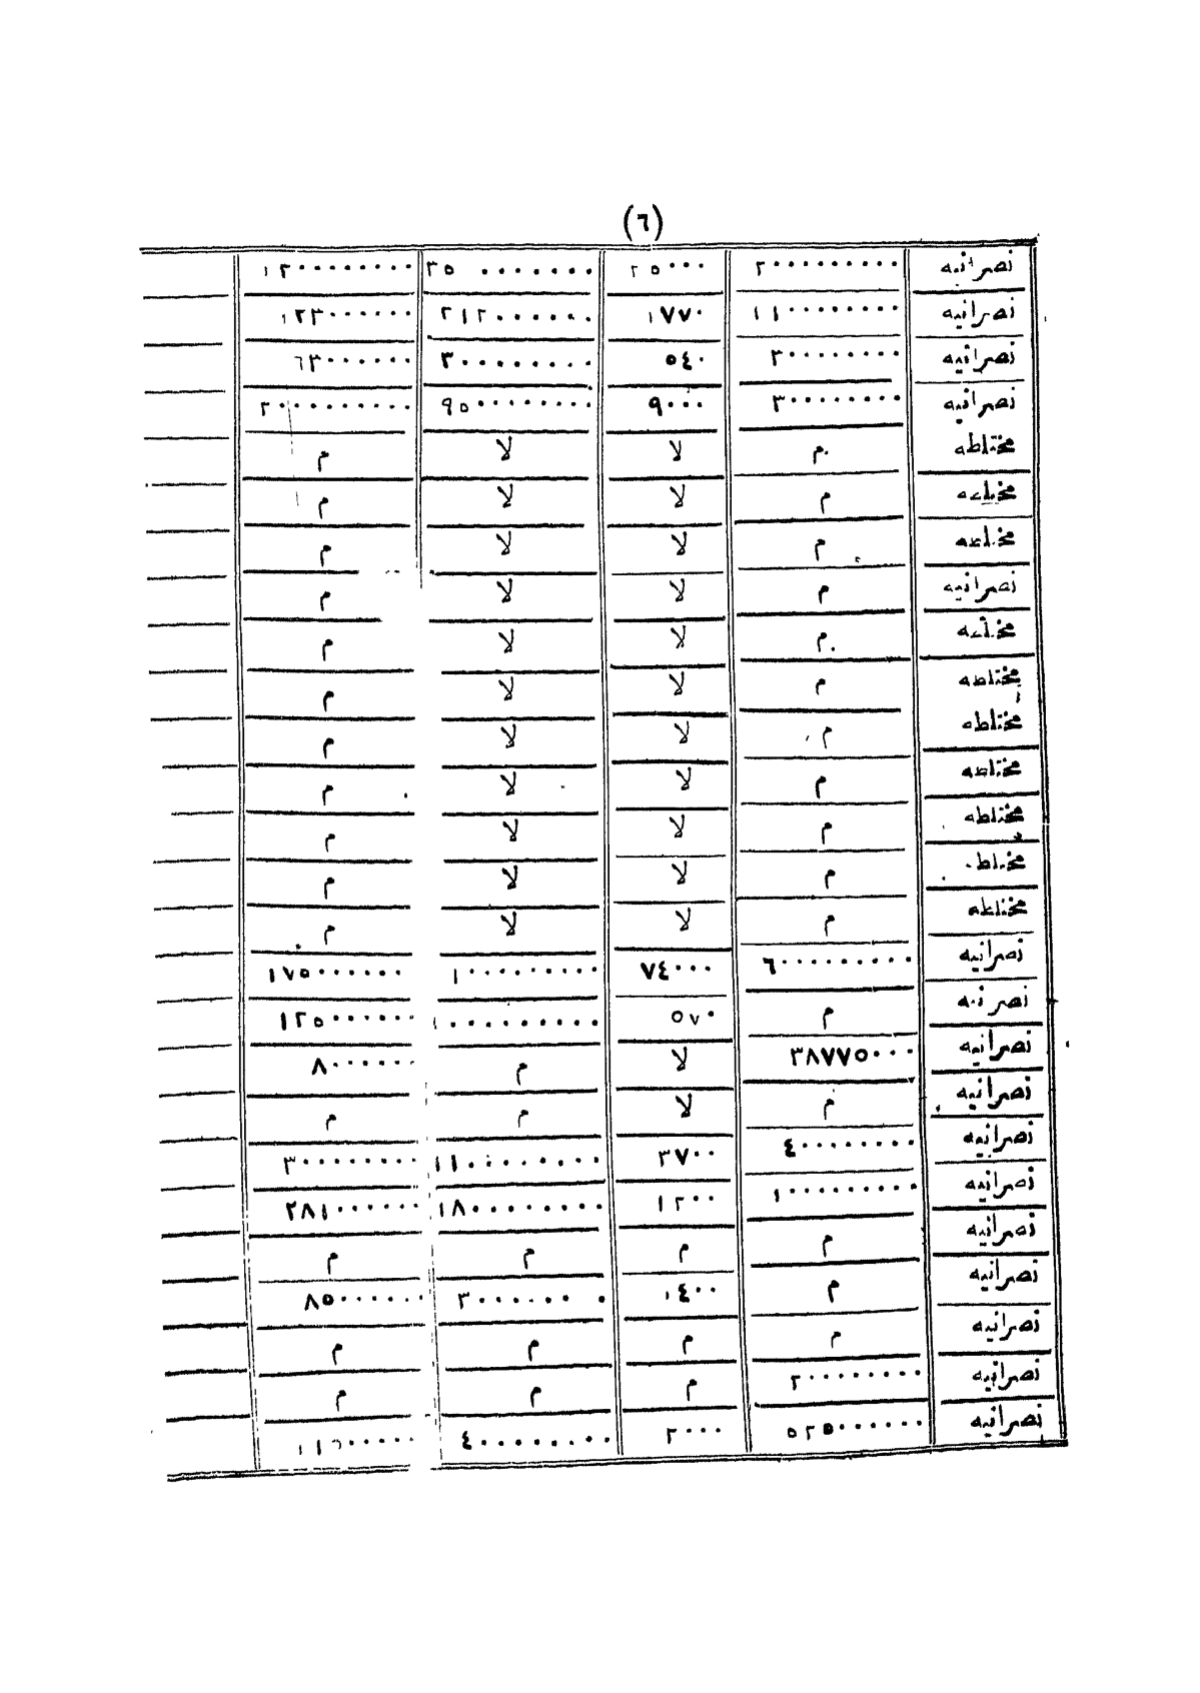 (٦)
نصرانيه ٢٠٠٠٠٠٠٠٠٠ ٢٥٠٠٠ ٣٥٠٠٠٠٠٠٠ ١٢٠٠٠٠٠٠٠٠
نصرانيه ١١٠٠٠٠٠٠٠٠ ١٧٧٠ ٢١٢٠٠٠٠٠٠ ١٢٣٠٠٠٠٠٠
نصرانيه ٢٠٠٠٠٠٠٠٠ ٥٤٠ ٣٠٠٠٠٠٠٠٠ ٦٣٠٠٠٠٠٠
نصرانيه ٣٠٠٠٠٠٠٠٠ ٩٠٠٠ ٩٥٠٠٠٠٠٠٠٠ ٢٠٠٠٠٠٠٠٠٠٠
مختلطه م لا لا م
م لا لا م
م لا لا م
نصرانيه م لا لا م
م لا لا م
مختلطه م لا لا م
مختلطه م لا لا م
مختلطه م لا لا م
مختلطه م لا لا م
م لا لا م
مختلطه م لا لا م
نصرانيه ٦٠٠٠٠٠٠٠٠٠ ٧٤٠٠٠ ١٠٠٠٠٠٠٠٠٠ ١٧٥٠٠٠٠٠٠
م ٥٧٠ ١٠٠٠٠٠٠٠٠٠ ١٢٥٠٠٠٠٠٠
نصرانيه ٣٨٧٧٥٠٠٠ لا م ٨٠٠٠٠٠٠
نصرانيه م لا م م
نصرانيه ٤٠٠٠٠٠٠٠٠ ٣٧٠٠ ١١٠٠٠٠٠٠٠٠ ٣٠٠٠٠٠٠٠٠
نصرانيه ١٠٠٠٠٠٠٠٠٠ ١٢٠٠ ١٨٠٠٠٠٠٠٠٠ ٢٨١٠٠٠٠٠٠
نصرانيه م م م م
نصرانيه م ١٤٠٠ ٣٠٠٠٠٠٠٠ ٨٥٠٠٠٠٠٠
نصرانيه م م م م
نصرانيه ٢٠٠٠٠٠٠٠٠ م م م
نصرانيه ٥٢٥٠٠٠٠٠٠ ٢٠٠٠ ٤٠٠٠٠٠٠٠٠